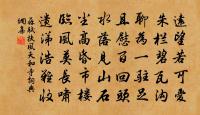 遠望若可愛
朱栏碧瓦溝
聊為一駐足
且慰百回頭
水落見山石
塵高昏市樓
臨風莫長嘯
遺響浩難收
蘇軾扶風天和寺詞典
網集